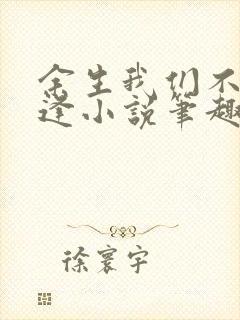 余生我们不
逢小说笔趣
徐寰宇